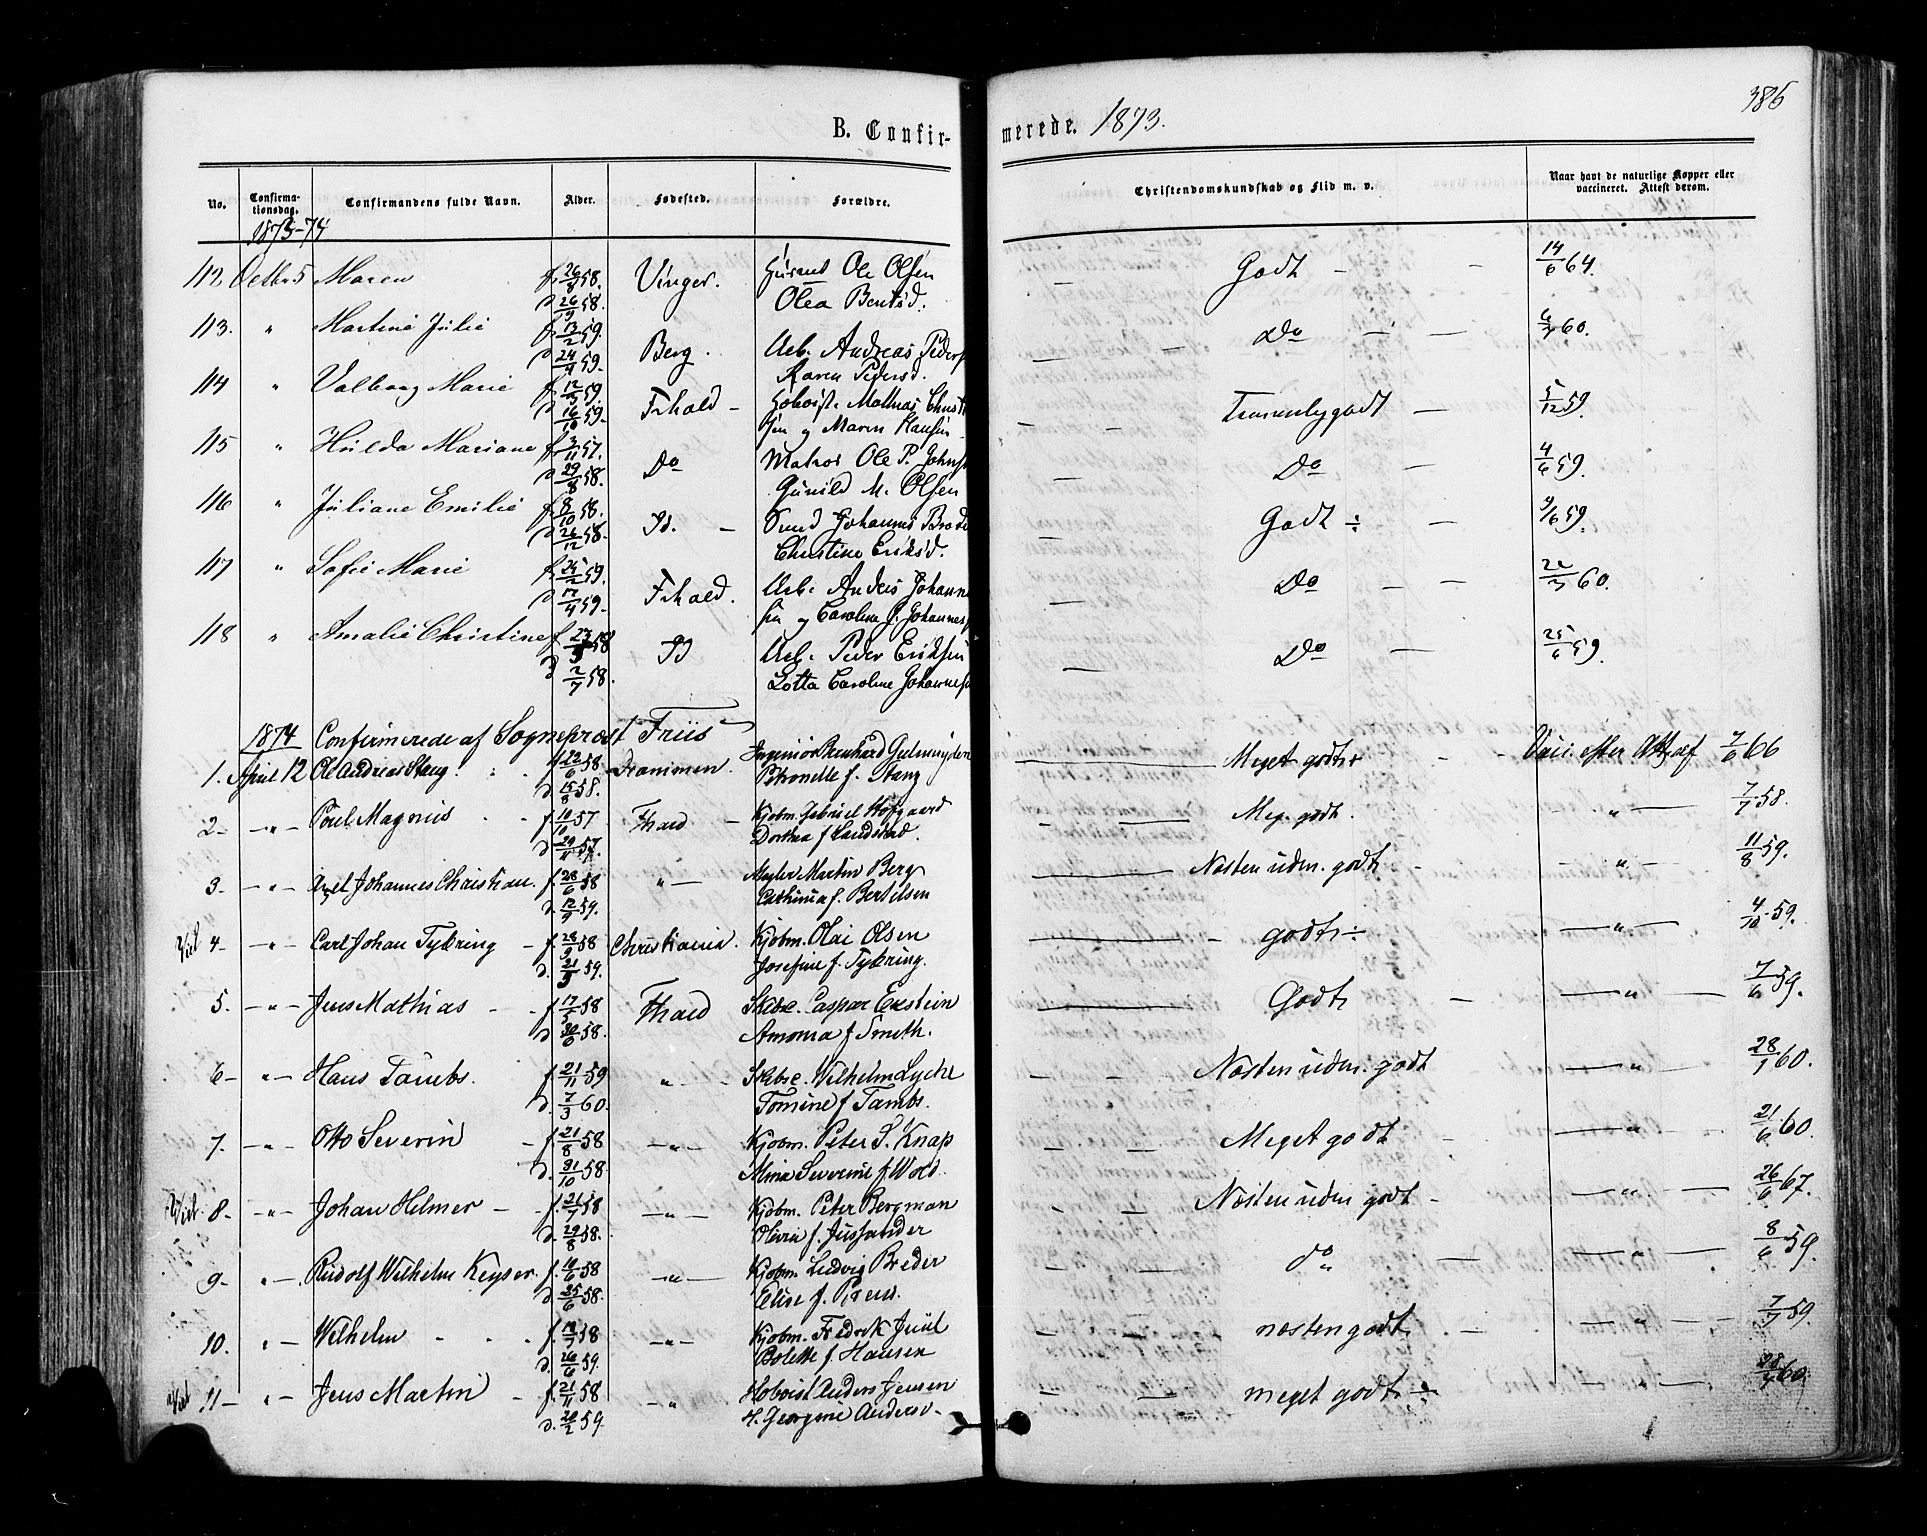 386
B. Confir- merede. 1873.
No. Confirma-tionsdag. Confirmandens fulde Navn. Alder. Fødested. Forældre. Christendomskundskab og Flid m. v. Naar havt de naturlige Kopper eller vaccineret. Attest derom.
1873-74
112 Octbr 5 Maren f. 26/8 58. Vinger. Ole Olsen Godt 14/6 64.
d. 26/9 58. Olea Bentsd.
113. " Martine Julie f. 13/2 59. Berg. Arb. Andreas Peders Do 60.
d. 24/4 59. Karen Pedersd.
114 " Valborg Marie f. 12/3 59. Frhald Hoboist. Mathias Christ Temmelig godt 5/12 59.
d. 16/10 59. sen og Maren Hansen
115 " Hulda Mariane f. 3/11 57. Do Matros Ole P. Johns Do 4/6 59.
d. 29/8 58. Gunild M. Olsen
116 " Juliane Emilie f. 8/10 58. Sd. Johannes Godt ÷ 9/6 59.
d. 26/12 58. Christine Eriksd.
117 " Sofie Marie f. 25/2 59. Frhald. Arb. Anders Johanne Do 60.
d. 17/4 59. sen og Caroline J. Johannes
118 " Amalie Christine f. 58 Arb. Peder Eriksen Do 25/6 59.
d. 2/7 58. Lotta Caroline Johannes
1874 Confirmerede af Sogneprest Friis
1. April 12 Ole Andreas Stang. f. 22/6 58. Drammen. Ingeniør Bernhard Meget godt+ Vacc. efter Att. af 7/6 66
d. 15/8 58. Petronelle f. Stang
2 - " - Poul Magnus f. 10/10 57 Fhald Kjøbm. Gabriel Hofgaard Meg. godt. " 7/7 58.
d. 29/11 57. Dorthea f. Landstad.
3. - " - Axel Johannes Christian. f. 28/6 58 " Mægler Martin Berg Næsten uden. godt. " 11/8 59.
d. 12/9 59. Cathinia f. Bertelsen
4 - " - Carl Johan Tybring f. 28/9 58 Christiania. Kjøbm. Olai Olsen godt ÷ " 4/10 59.
d. 21/3 59. Josefine f. Tybring.
5. - " - Jens Mathias f. 17/5 58 Fhald Skibsc. Caspar Eckstein Godt " 7/6 59.
d. 30/6 58. f. Smith.
6 - " - Hans Tambs. f. 21/11 59 " Skibsc. Vilhelm Lyche Næsten uden. godt " 28/1 60.
d. 7/3 60. Tomine f. Tambs.
7. - " - Otto Severin f. 21/8 58 " Kjøbm. Peter S. Knap Meget godt " 21/6 60.
d. 31/10 58 Mina Severine f. Wold.
8 - " - Johan Helmer f. 21/7 58 " Kjøbm. Peter Bergman Næsten uden godt " 26/6 67.
d. 29/8 58. Olivia f.
9 - " - Rudolf Wilhelm Keyser. f. 10/6 58 " Kjøbm. Ludvig Breder do " 8/6 59.
d. 25/6 58. Elise f.
10. " - Wilhelm f. 58 " Kjøbm. Fredrik Juul næsten godt " 7/7 59.
d. 26/6 59. Bolette f. Hansen
11 - " - Jens Martin f. 21/11 58 " Hoboist Anders Jensen meget godt ÷ " 60.
d. 20/2 59. H. Georgine Anders